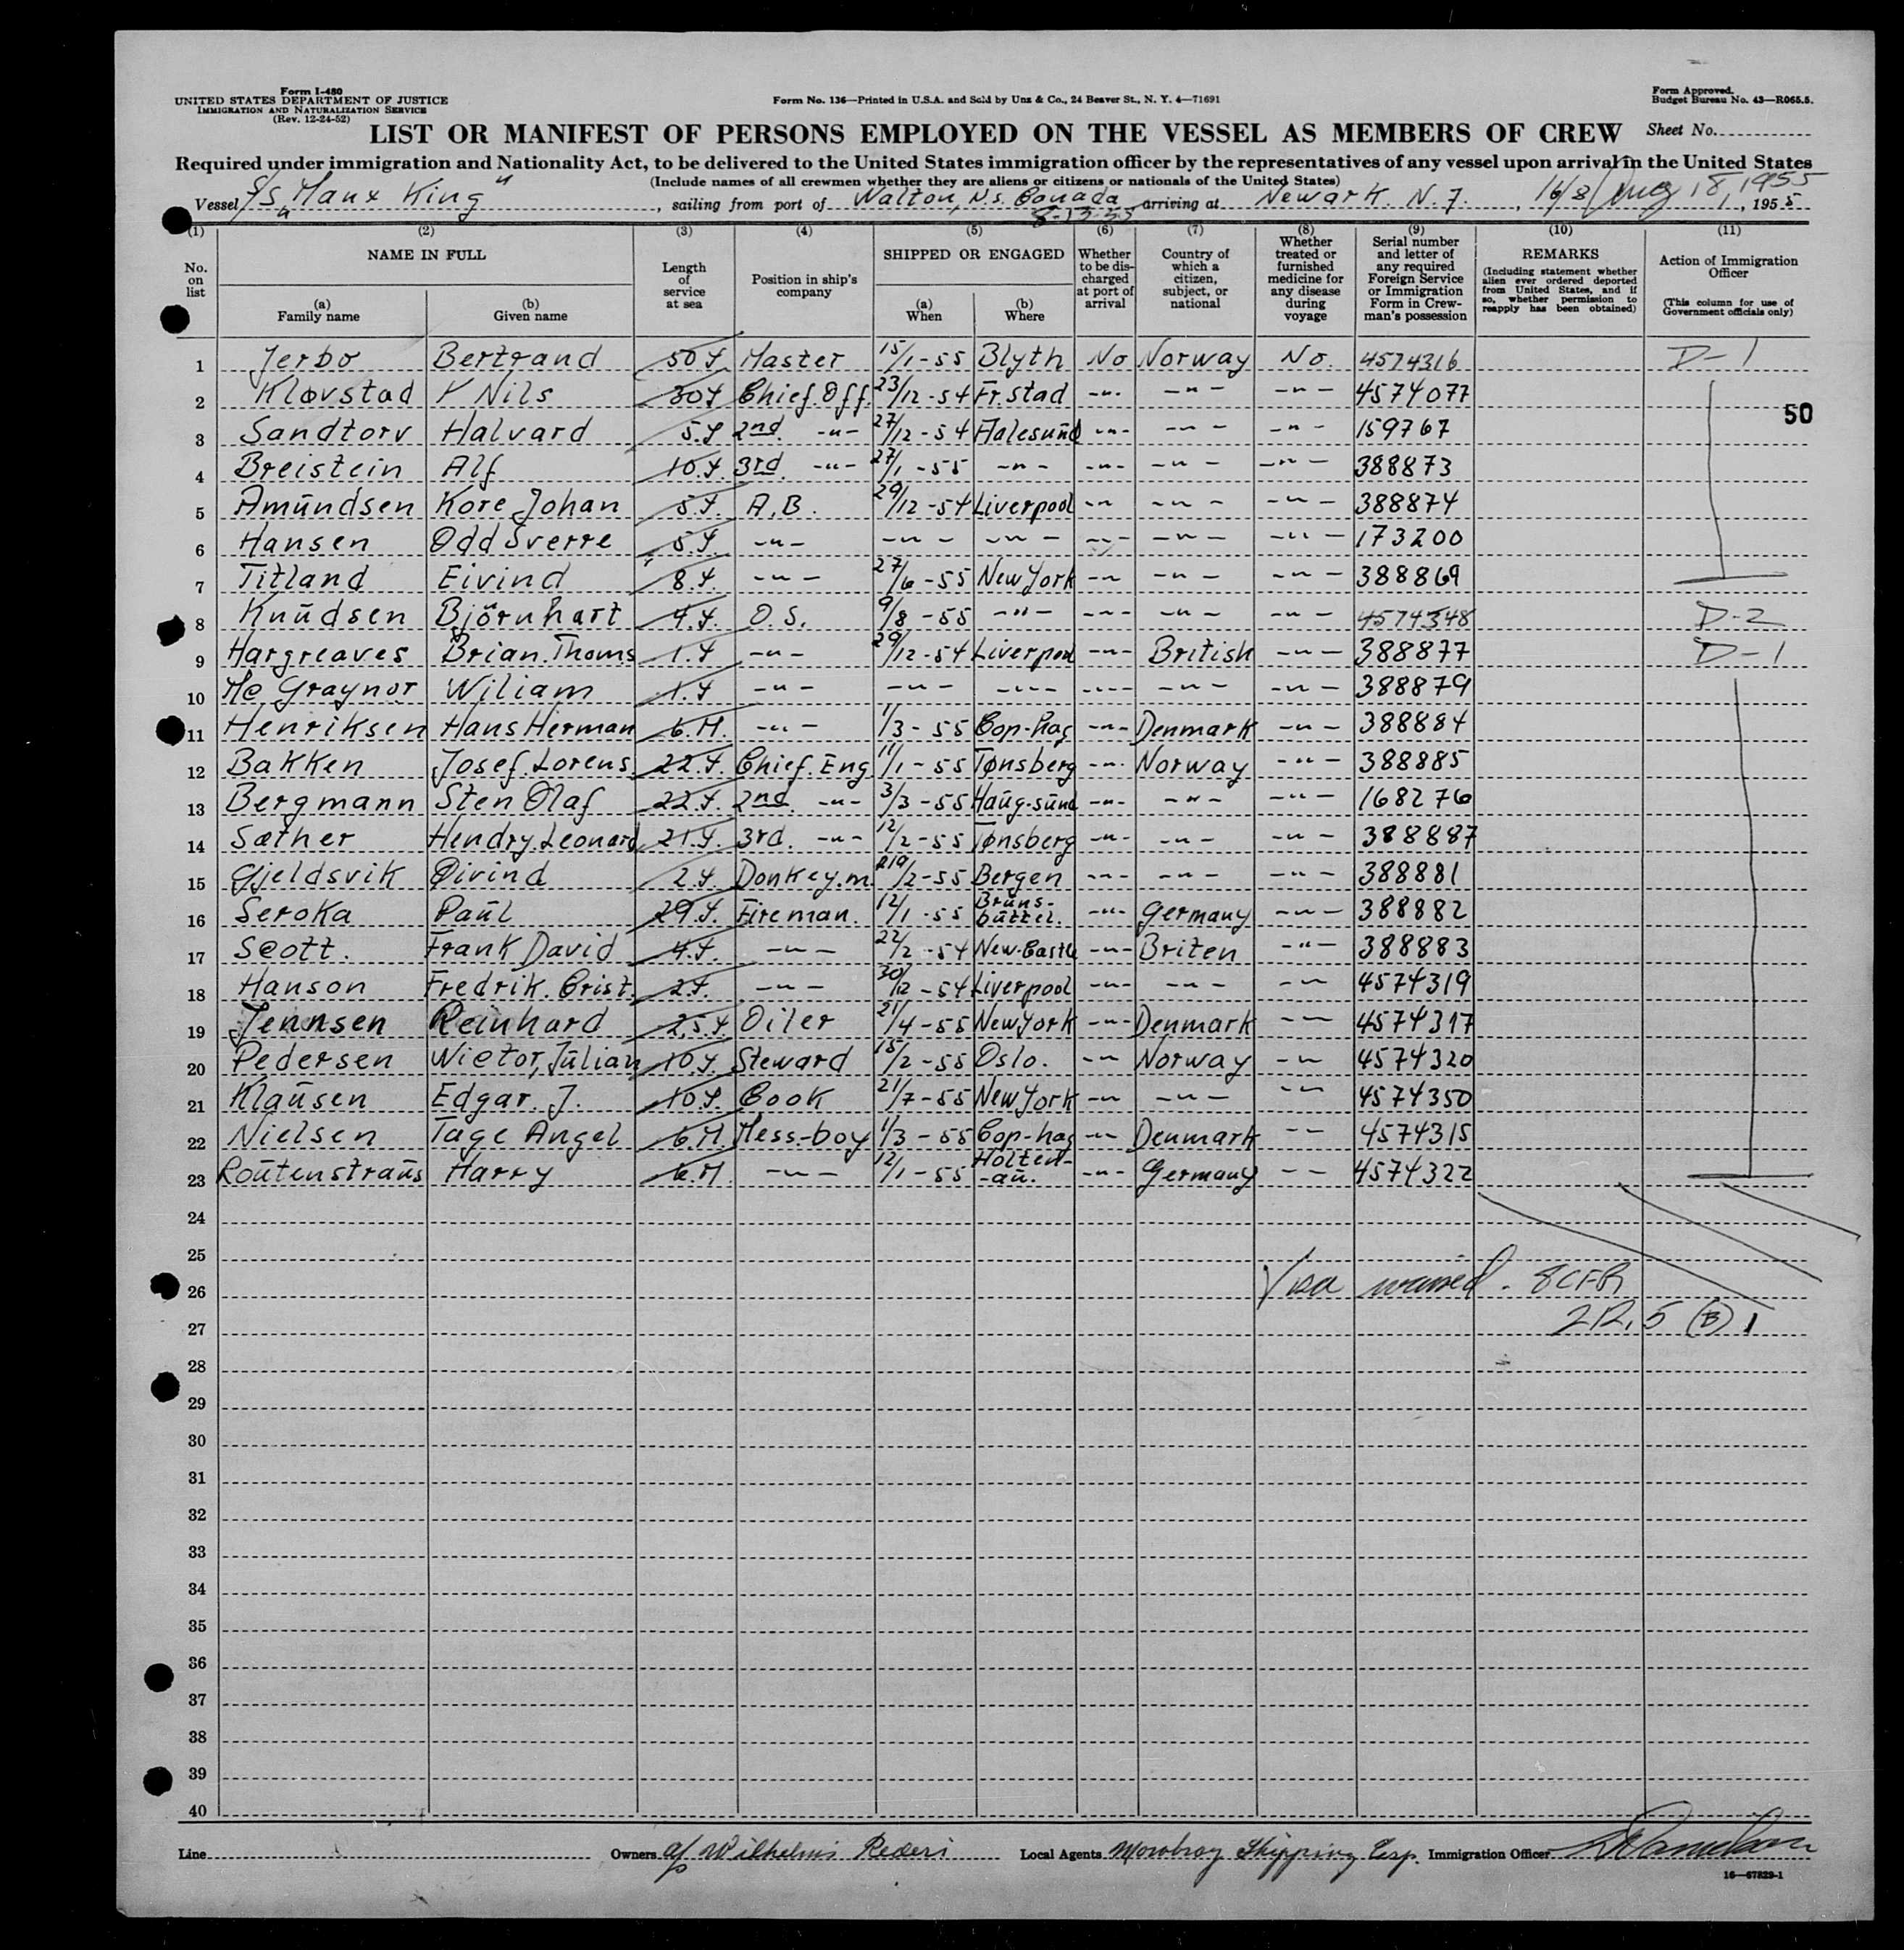 Form I-480
UNITED STATES DEPARTMENT OF JUSTICE
IMMIGRATION AND NATURALIZATION SERVICE
(Rev. 12-24-52)
Form No. 136—Printed in U.S.A. and Sold by Unz & Co., 24 Beaver St., N. Y. 4—71691
Form Approved.
Budget Bureau No. 43—R065.5.
LIST OR MANIFEST OF PERSONS EMPLOYED ON THE VESSEL AS MEMBERS OF CREW Sheet No.
Required under immigration and Nationality Act, to be delivered to the United States immigration officer by the representatives of any vessel upon arrival in the United States
(Include names of all crewmen whether they are aliens or citizens or nationals of the United States)
Vessel S/S "Manx King", sailing from port of Walton, N.s. Canada arriving at Newark. N.J., 16/8 Aug 18, 1955, 1955
8-13-55
(1) (2) (3) (4) (5) (6) (7) (8) (9) (10) (11)
No. on list
NAME IN FULL
(a) Family name
(b) Given name
Length of service at sea
Position in ship's company
SHIPPED OR ENGAGED
(a) When
(b) Where
Whether to be discharged at port of arrival
Country of which a citizen, subject, or national
Whether treated or furnished medicine for any disease during voyage
Serial number and letter of any required Foreign Service or Immigration Form in Crewman's possession
REMARKS
(Including statement whether alien ever ordered deported from United States, and if so, whether permission to reapply has been obtained)
Action of Immigration Officer
(This column for use of Government officials only)
1 Jerbo Bertrand 50 Y Master 15/1-55 Blyth No Norway No. 4574316 D-1
2 Kløvstad Nils 30 Y Chief. Off. 23/12-54 Fr.stad -"- -"- -"- 4574077
50
3 Sandtorv Halvard 5.Y 2nd. -"- 27/12-54 Aalesünd -"- -"- -"- 159767
4 Breistein Alf 10.Y. 3rd. -"- 27/1-55 -"- -"- -"- -"- 388873
5 Amündsen Kore Johan 5.Y. A.B. 29/12-54 Liverpool -"- -"- -"- 388874
6 Hansen Odd Sverre 5.Y. -"- -"- -"- -"- -"- -"- 173200
7 Titland Eivind 8.Y. -"- 27/6-55 New York -"- -"- -"- 388869
8 Knüdsen Björnhart 4.Y. O.S. 9/8-55 -"- -"- -"- -"- 4574348 D-2
9 Hargreaves Brian.Thoms 1.Y -"- 29/12-54 Liverpool -"- British -"- 388877 D-1
10 Mc Graynor Wiliam 1.Y -"- -"- -"- -"- -"- -"- 388879
11 Henriksen Hans Herman 6.M. -"- 1/3-55 Cop-hag -"- Denmark -"- 388884
12 Bakken Josef.Lorens. 22.Y. Chief.Eng. 11/1-55 Tønsberg -"- Norway -"- 388885
13 Bergmann Sten Olaf 22.Y. 2nd. -"- 3/3-55 Haüg-sünd -"- -"- -"- 168276
14 Sæther Hendry.Leonard 21.Y. 3rd. -"- 12/2-55 Tønsberg -"- -"- -"- 388887
15 Gjeldsvik Øivind 2.Y. Donkey.m. /2-55 Bergen -"- -"- -"- 388881
16 Seroka Paül 29.Y. Fireman. 12/1-55 Brüns-büttel. -"- Germany -"- 388882
17 Scott. Frank David 4.Y. -"- 22/2-54 New-Castle -"- Briten -"- 388883
18 Hanson Fredrik.Crist. 2Y. -"- 30/12-54 Liverpool -"- -"- -"- 4574319
19 Jennsen Reinhard 2,5.Y. Oiler 21/4-55 New York -"- Denmark -"- 4574317
20 Pedersen Wictor, Jülian 10.Y. Steward 15/2-55 Oslo. -"- Norway -"- 4574320
21 Klaüsen Edgar. J. 10Y. Cook 21/7-55 New York -"- -"- -"- 4574350
22 Nielsen Tage Angel 6.M. Mess-boy 1/3-55 Cop-hag -"- Denmark -"- 4574315
23 Roütenstraüs Harry 6.M. -"- 12/1-55 Holten-aü. -"- Germany -"- 4574322
24
25
26 Visa waived. 8CFR
27 212.5 (B) 1
28
29
30
31
32
33
34
35
36
37
38
39
40
Line Owners A/S Wilhelms Rederi Local Agents Mowbray Shipping Corp. Immigration Officer
16—67829-1